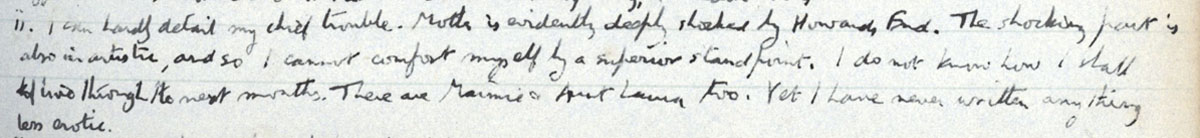 ii. I can hardly detail my chief trouble. Mother is evidently deeply shocked by Howards End. The shocking part is
also inartistic, and so I cannot comfort myself by a superior standpoint. I do not know how I shall
live through the next months. There are Maimie & Aunt Laura too. Yet I have never written anything
less erotic.